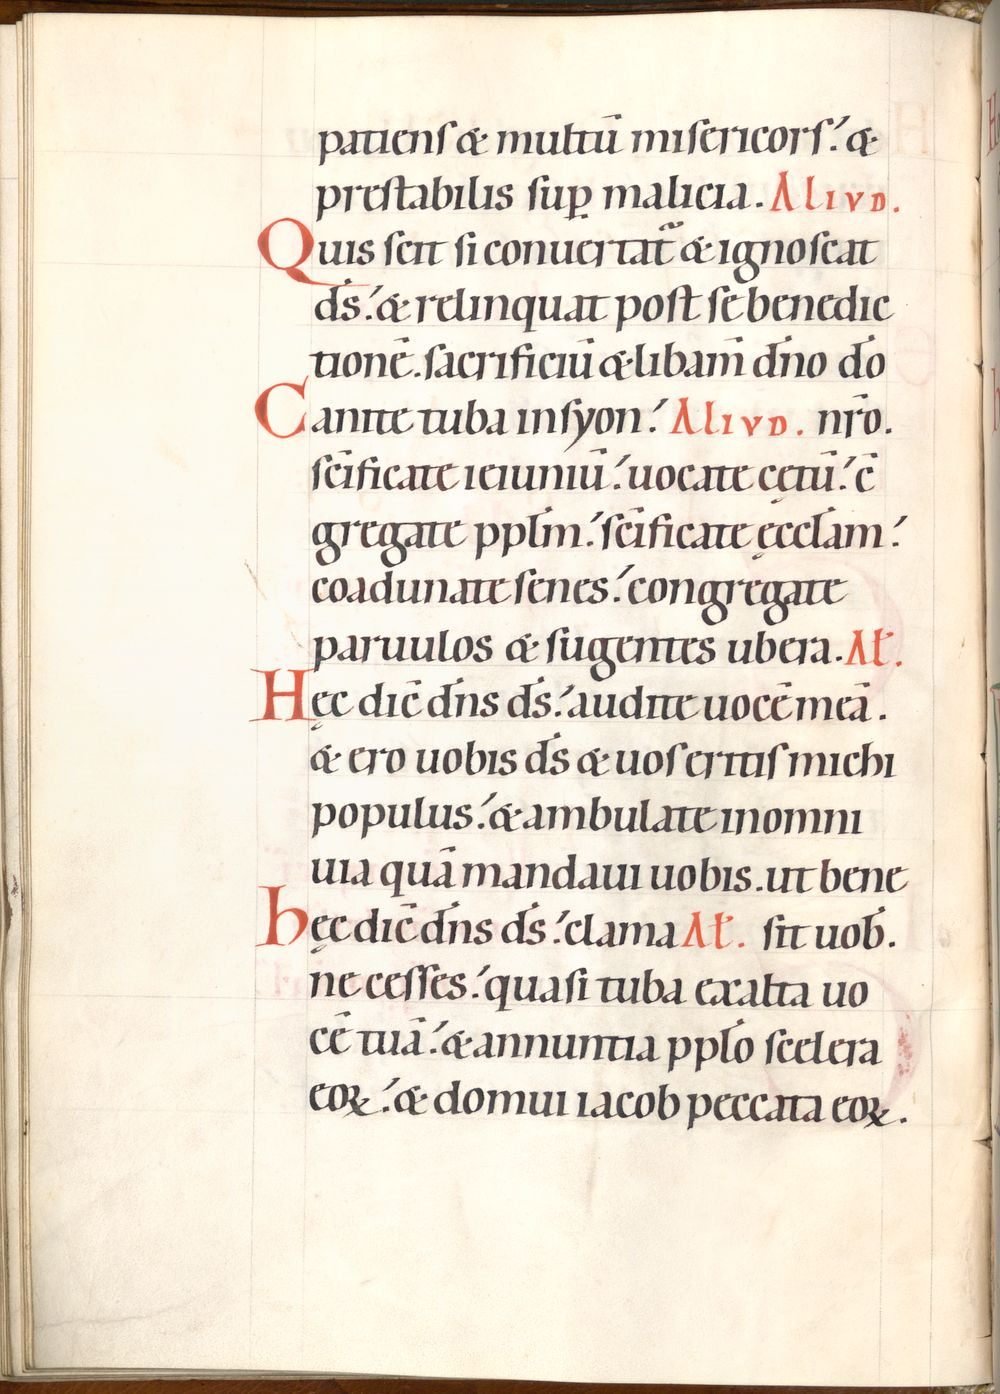 patienſ & multū miſericorſ.' &
preſtabilis ſuꝑ malicia. ALIVD.
Quis ſcit ſi conuertat̃ & ignoſcat
d̄s.' & relinquat poſt ſe benedic
tionē. ſacrificiū & libam̄ dño dō
Canite tuba in ſyon.' ALIVD. nr̄o.
ſc̄ificate ieiuniū.' uocate cętū.' c̄
gregate ppl̄m.' ſc̄ificate ęccl̄am.'
coadunate ſenes.' congregate
paruulos & ſugentes ubera. Al̄.
Hęc dic̄ dñs d̄s.' audite uocē meā.
& ero uobis d̄s & uoſ eritiſ michi
populus.' & ambulate in omni
uia quā mandaui uobis. ut bene
hęc dic̄ dñs d̄s.' clama Al̄. ſit uob̄.
ne ceſſes.' quaſi tuba exalta uo
cē tuā.' & annuntia ppl̄o ſcelera
eoꝝ.' & domui iacob peccata eoꝝ.